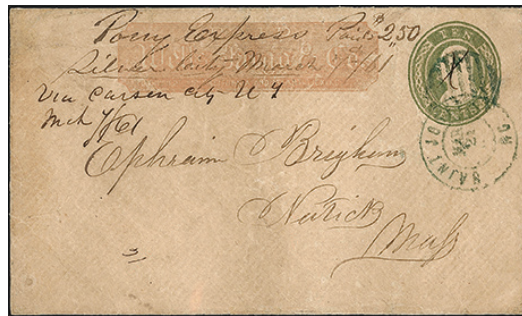 Pony Express Paid $2.50
Silver City March 7"/61
Via Carson City U T
Mch 7/61
TEN
CENTS
Ephraim Brigham
Natick
Mass
SAINT JO
MAR
MO
3